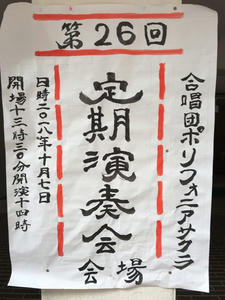 第26回
合唱団ポリフォニアサクラ
定期演奏会
会場
日時二〇一八年十月七日
開場十三時三〇分開演十四時